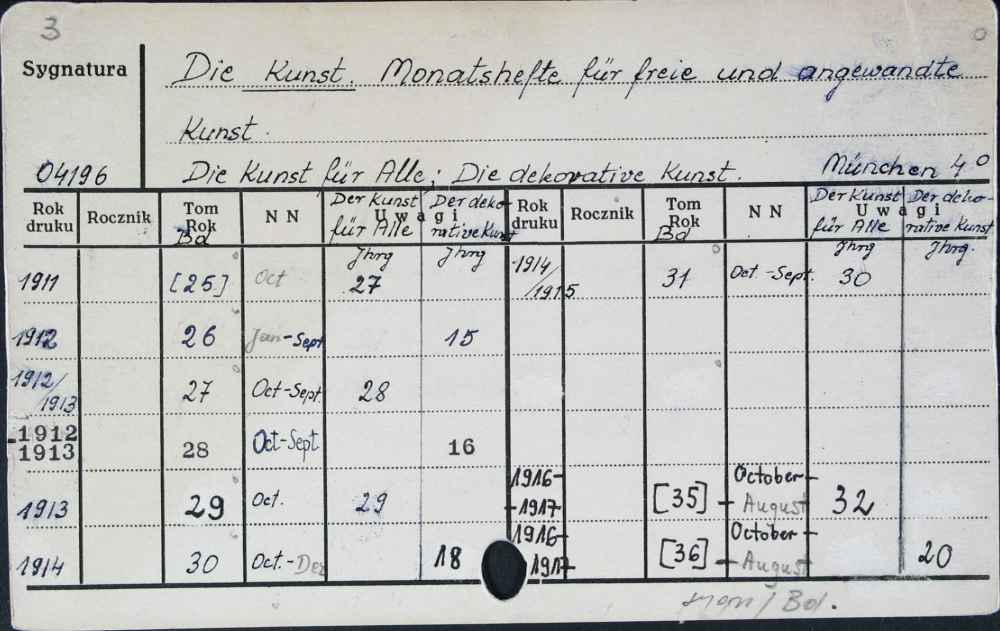 3
Sygnatura Die Kunst. Monatshefte für freie und angewandte
Kunst.
04196 Die Kunst für Alle; Die dekorative Kunst. München 4°
Rok druku Rocznik Tom Rok Bd N N Uwagi Der Kunst für Alle Jhrg Der dekorative Kunst Jhrg Rok druku Rocznik Tom Rok Bd N N Uwagi Der Kunst für Alle Jhrg Der deko-rative Kunst Jhrg.
1911 [25] Oct 27 1914/1915 31 Oct-Sept. 30
1912 26 Jan-Sept 15
1912/1913 27 Oct-Sept 28
-1912 1913 28 Oct-Sept 16
1913 29 Oct. 29 1916-1917 [35] October-August 32
1914 30 Oct.-Dez 18 1916-1917 [36] October-August 20
Bd.